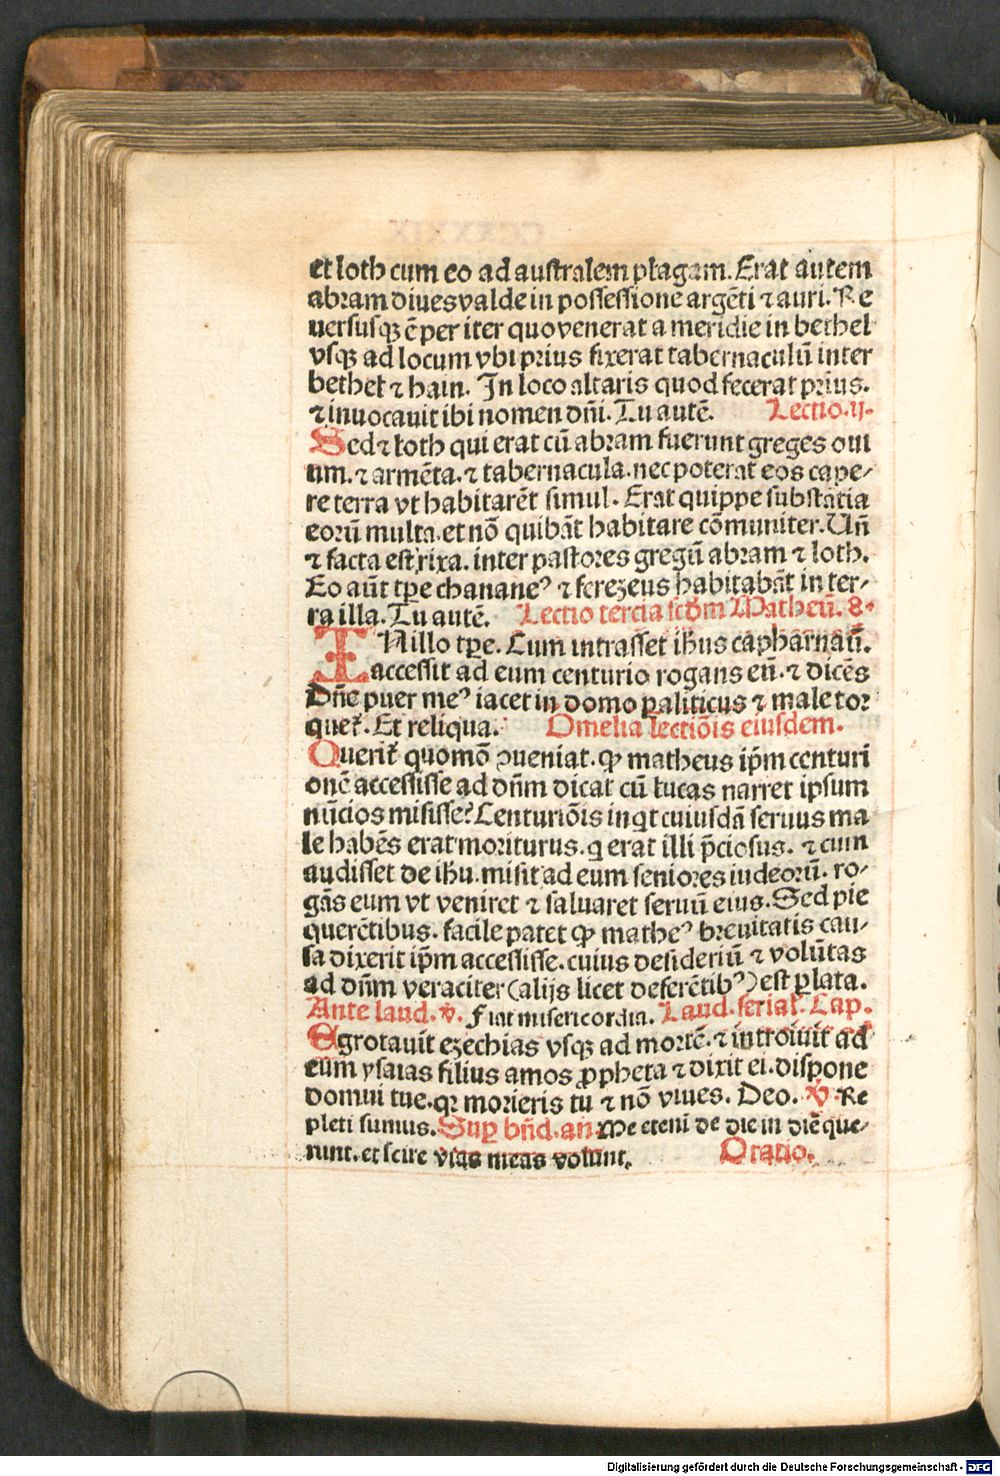 et loth cum eo ad australem plagam. Erat autem
abram diues valde in possessione argēti ⁊ auri. Re
uersusqꝫ ē per iter quo venerat a meridie in bethel
vsqꝫ ad locum vbi prius fixerat tabernaculū inter
bethel ⁊ hain. In loco altaris quod fecerat prius.
⁊ inuocauit ibi nomen dñi. Tu autē. Lectio .ij.
Sed ⁊ loth qui erat cū abram fuerunt greges oui
um. ⁊ armēta. ⁊ tabernacula. nec poterat eos cape⸗
re terra vt habitarēt simul. Erat quippe substātia
eorū multa. et nō quibāt habitare cōmuniter. Uñ
⁊ facta est rixa. inter pastores gregū abram ⁊ loth.
Eo aūt tꝑe chananeꝰ ⁊ ferezeus habitabāt in ter⸗
ra illa. Tu autē. Lectio tercia scḋm Matheū. 8.
IN illo tꝑe. Cum intrasset ihūs capharnaū.
accessit ad eum centurio rogans eū. ⁊ dicēs
Dñe puer meꝰ iacet in domo ꝑaliticus ⁊ male tor
quet᷑. Et reliqua. Omelia lectiōis eiusdem.
Querit᷑ quomō ꝯueniat. ꝙ matheus ip̄m centuri
onē accessisse ad dñm dicat cū lucas narret ipsum
nūcios misisse? Centuriōis inqt cuiusdā seruus ma
le habēs erat moriturus. q erat illi p̄ciosus. ⁊ cum
audisset de ihū. misit ad eum seniores iudeorū. ro⸗
gās eum vt veniret ⁊ saluaret seruū eius. Sed pie
querētibus. facile patet ꝙ matheꝰ breuitatis cau⸗
sa dixerit ip̄m accessisse. cuius desideriū ⁊ volūtas
ad dñm veraciter (alijs licet deferētibꝰ) est ꝑlata.
Ante laud. ℣. Fiat misericordia. Laud. ferial. Cap.
Egrotauit ezechias vsqꝫ ad mortē. ⁊ introiuit ad
eum ysaias filius amos ꝓpheta ⁊ dixit ei. dispone
domui tue. qꝛ morieris tu ⁊ nō viues. Deo. ℣. Re
pleti sumus. Suꝑ bñd. añ. Me etenī de die in diē que⸗
runt. et scire vias meas volunt. Oratio.
Digitalisierung gefördert durch die Deutsche Forschungsgemeinschaft - DFG